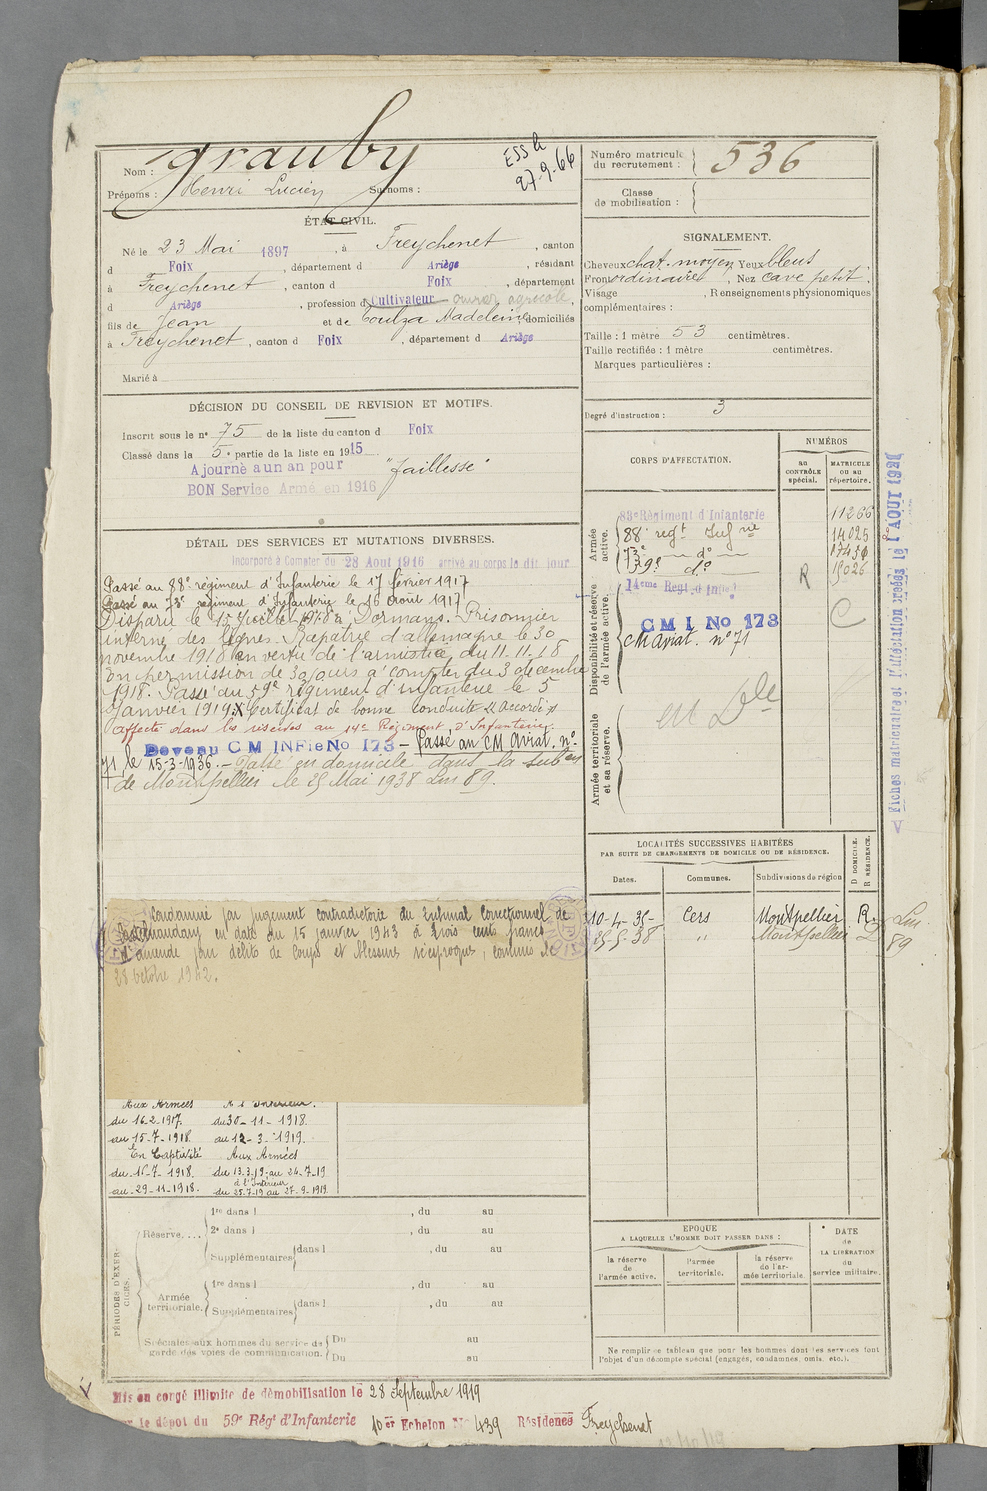 Nom : Grauby
Prénoms : Henri Lucien Surnoms :
ESS le
27-9-66
ÉTAT CIVIL.
Né le 23 Mai 1897, à Freychenet, canton
d Foix, département d Ariège, résidant
à Freychenet, canton d Foix, département
d Ariège, profession d Cultivateur ouvrier agricole,
fils de Jean et de Toulza Madeleine, domiciliés
à Freychenet, canton d Foix, département d Ariège
Marié à
DÉCISION DU CONSEIL DE REVISION ET MOTIFS.
Inscrit sous le n° 75 de la liste du canton d Foix
Classé dans la 5e partie de la liste en 1915.
Ajourné a un an pour "faiblesse"
BON Service Armé en 1916
DÉTAIL DES SERVICES ET MUTATIONS DIVERSES.
Incorporé à Compter du 28 Aout 1916 arrivé au corps le dit jour
Passé au 88e régiment d'Infanterie le 17 février 1917
Passé au 73e régiment d'Infanterie le 16 août 1917
Disparu le 15 Juillet 1918 à Dormans. Prisonnier
interné des lignes. Rapatrié d'allemagne le 30
novembre 1918 en vertu de l'armistice du 11.11.18
En permission de 30 jours à compter du 3 decembre
1918. Passé au 59e régiment d'infanterie le 5
Janvier 1919. Certificat de bonne conduite "Accordé"
Affecté dans les réserves au 14e Régiment d'Infanterie.
Devenu C M INFie No 173 – Passé au CM Aviat. n°
71 le 15-3-1936. – Passé en domicile dans la subon
de Montpellier le 25 Mai 1938 Lm 89.
Condamné par jugement contradictoire du Tribunal Correctionnel de
Castelnaudary en date du 15 janvier 1943 à trois cents francs
d'amende pour délits de coups et blessures réciproques, commis le
28 octobre 1942.
Aux Armées A l'Intérieur.
du 16-2-1917. du 30-11-1918.
au 15-7-1918. au 12-3-1919.
En Captivité Aux Armées
du 16-7-1918. du 13.3.19 au 24-7-19
à l'Intérieur
au 29-11-1918. du 25.7.19 au 27-9-1919.
PÉRIODES D'EXERCICES.
Réserve....
1re dans l , du au
2e dans l , du au
Supplémentaires dans l , du au
Armée territoriale.
1re dans l , du au
Supplémentaires dans l , du au
Spéciales aux hommes du service de garde des voies de communication.
Du au
Du au
Mis en congé illimité de démobilisation le 28 Septembre 1919
le dépot du 59e Régt d'Infanterie 10er Echelon No 439 Résidence Freychenet
Numéro matricule du recrutement : 536
Classe de mobilisation :
SIGNALEMENT.
Cheveux chat. moyen Yeux bleus
Front ordinaire, Nez cave petit.
Visage , Renseignements physionomiques
complémentaires :
Taille : 1 mètre 53 centimètres.
Taille rectifiée : 1 mètre centimètres.
Marques particulières :
Degré d'instruction : 3
CORPS D'AFFECTATION.
NUMÉROS
au CONTRÔLE spécial.
MATRICULE ou au répertoire.
Armée active.
83e Régiment d'Infanterie 11266
88e regt Infrie 14025
73e do 17450
59e do 15026
R
Disponibilité et réserve de l'armée active.
14eme Regt. d'Infie
C M I No 173
CM Aviat. n° 71
C
Armée territoriale et sa réserve.
LOCALITÉS SUCCESSIVES HABITÉES
PAR SUITE DE CHANGEMENTS DE DOMICILE OU DE RÉSIDENCE.
Dates. Communes. Subdivisions de région D DOMICILE. R RÉSIDENCE.
10-4-35- Cers Montpellier R
25-5-38 " Montpellier D Lm 89
EPOQUE
A LAQUELLE L'HOMME DOIT PASSER DANS :
la réserve de l'armée active.
l'armée territoriale.
la réserve de l'armée territoriale.
DATE de LA LIBÉRATION du service militaire.
Ne remplir ce tableau que pour les hommes dont les services font
l'objet d'un décompte spécial (engagés, condamnés, omis, etc.).
Fiches matriculaire et d'affectation créées le 1 AOUT 1921